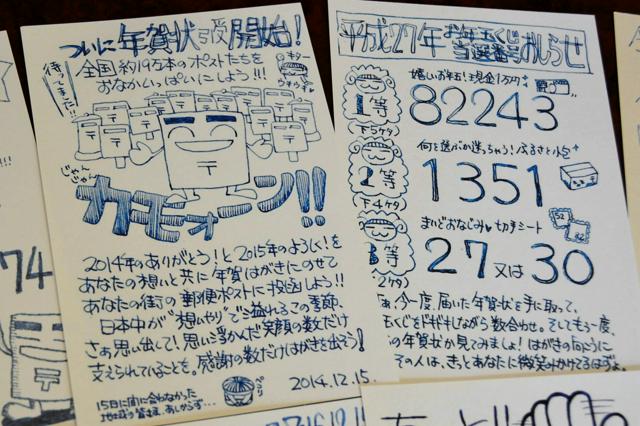 ついに年賀状引受開始!
待ってました!!
全国約19万本のポストたちを
おなかいっぱいにしよう!!!
じゃんじゃん
カモォーン!!
2014年のありがとう!と2015年のよろしく!を
あなたの想いと共に年賀はがきにのせて
あなたの街の郵便ポストに投函しよう!!
日本中が"想いやり"で溢れるこの季節、
さぁ思い出して!思い浮かんだ笑顔の数だけ
支えられていることを。感謝の数だけはがきを送ろう!
2014.12.15.
15日に間に合わなかった
地域の皆さま、あしからず…
ペコリ
平成27年お年玉くじ
当選番号おしらせ
1等
下5ケタ
嬉しいお年玉!現金1万円
82243
2等
下4ケタ
何を選ぶか迷っちゃう!ふるさと小包
1351
3等
下2ケタ
まいどおなじみ♥切手シート
52
82
27又は30
あ、今一度、届いた年賀状を手に取って、
玉くじをドキドキしながら数合わせ。そしてもう一度、
の年賀状から見てみましょ!はがきの向こうに
その人は、きっとあなたに微笑みかけてるはずよ。
74